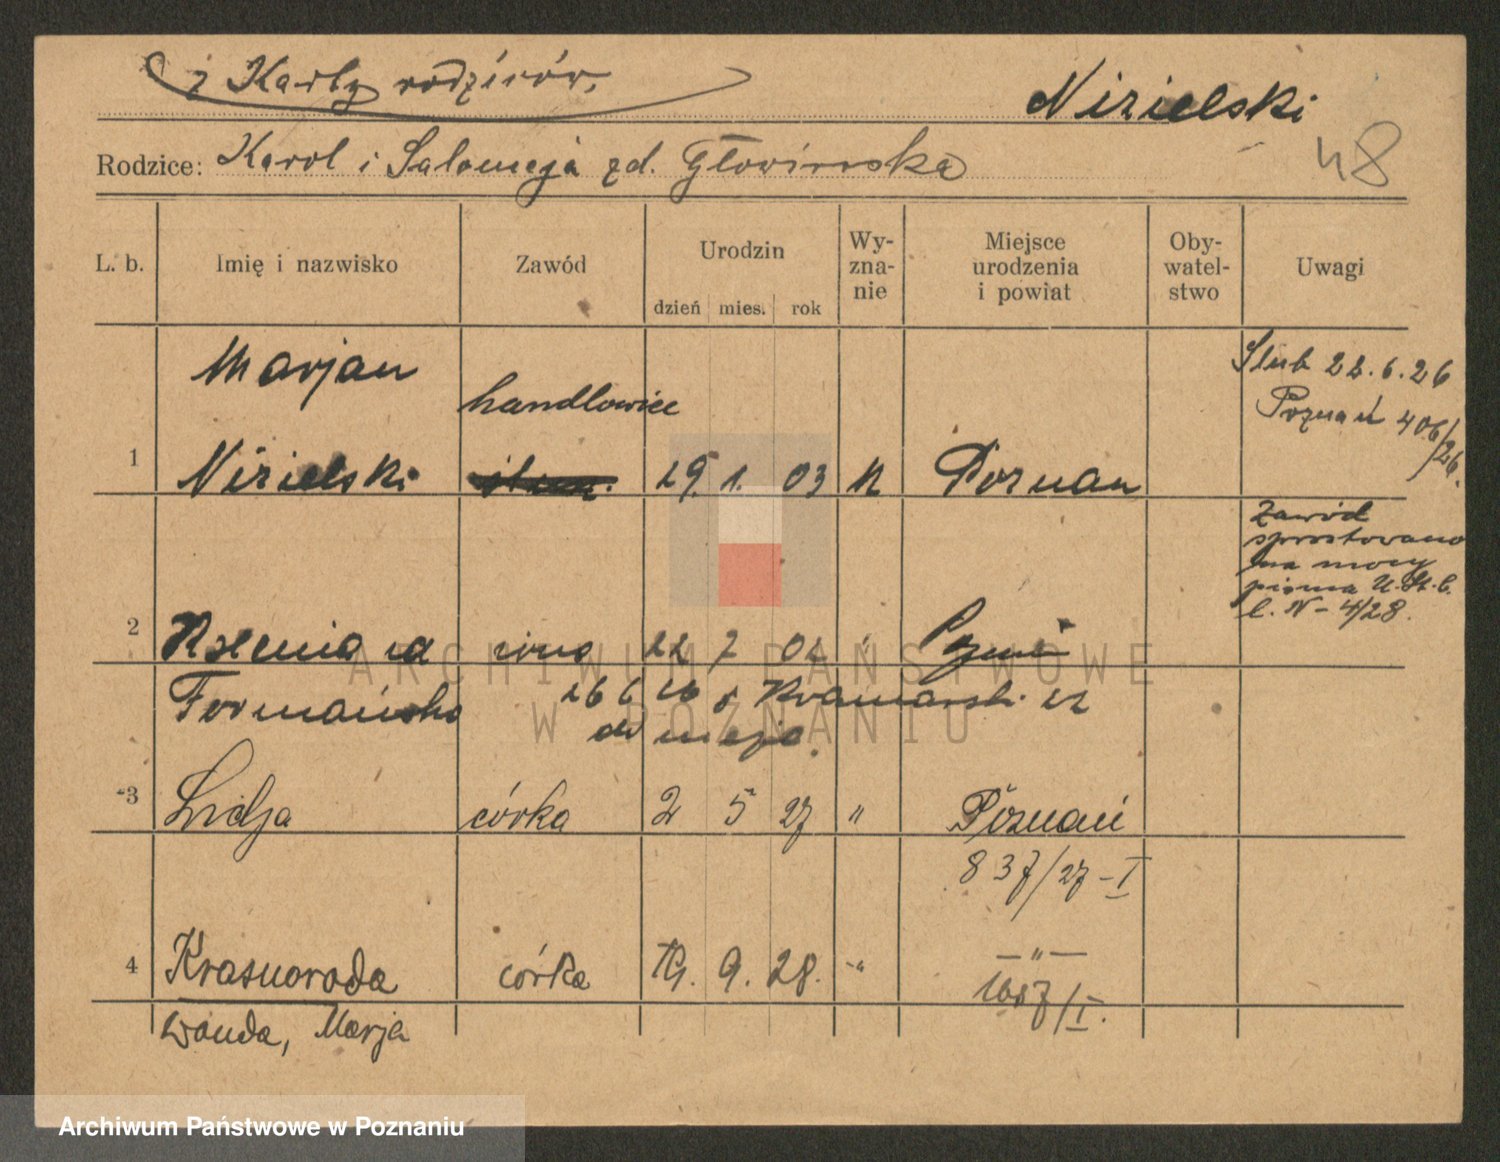 z Karty rodziców.
Nizielski
48
Rodzice: Karol i Salomeja zd. Głowińska
L. b. Imię i nazwisko Zawód Urodzin dzień mies. rok Wy-zna-nie Miejsce urodzenia i powiat Oby-watel-stwo Uwagi
Marjan handlowiec Ślub 22.6.26
Poznań 406/26.
1 Nizielski 29. 1. 03 k Poznań
Zawód
sprostowano
na mocy
pisma U. St. C.
l. N – 4/28.
2 Ksenia żona 22 7 02 "
Formańska 26 6 26 z Kramarskiej
do męża.
3 Lidja córka 2 5 27 " Poznań
837/27 – I
4 Krasnoroda córka 19. 9. 28. -"- —"—
/I.
Wanda, Marja
ARCHIWUM PAŃSTWOWE
W POZNANIU
Archiwum Państwowe w Poznaniu